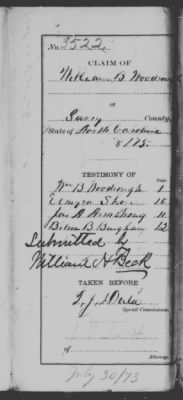 No. 3522
CLAIM OF
William B. Woodrough
of
Surry County,
State of North Carolina
$175.
TESTIMONY OF
Page.
Wm B Woodrough 1
Elmyra Shore 10
Jas. A. Armstrong 11
B. Bingham 12
Submitted by
William H Beck
TAKEN BEFORE
T. J.
Special Commissioner.
of
Attorney.
July 30/73